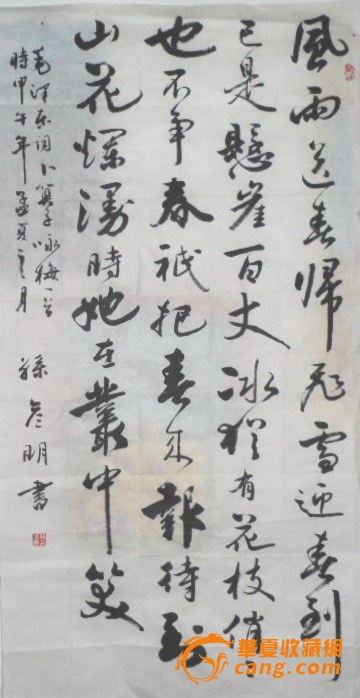 風雨送春歸飛雪迎春到
已是懸崖百丈冰猶有花枝俏
也不爭春祇把春來報待到
山花爛漫時她在叢中笑
毛泽东词卜算子咏梅一首
時甲午年孟夏之月
孫彦明書
華夏收藏網
cang.com